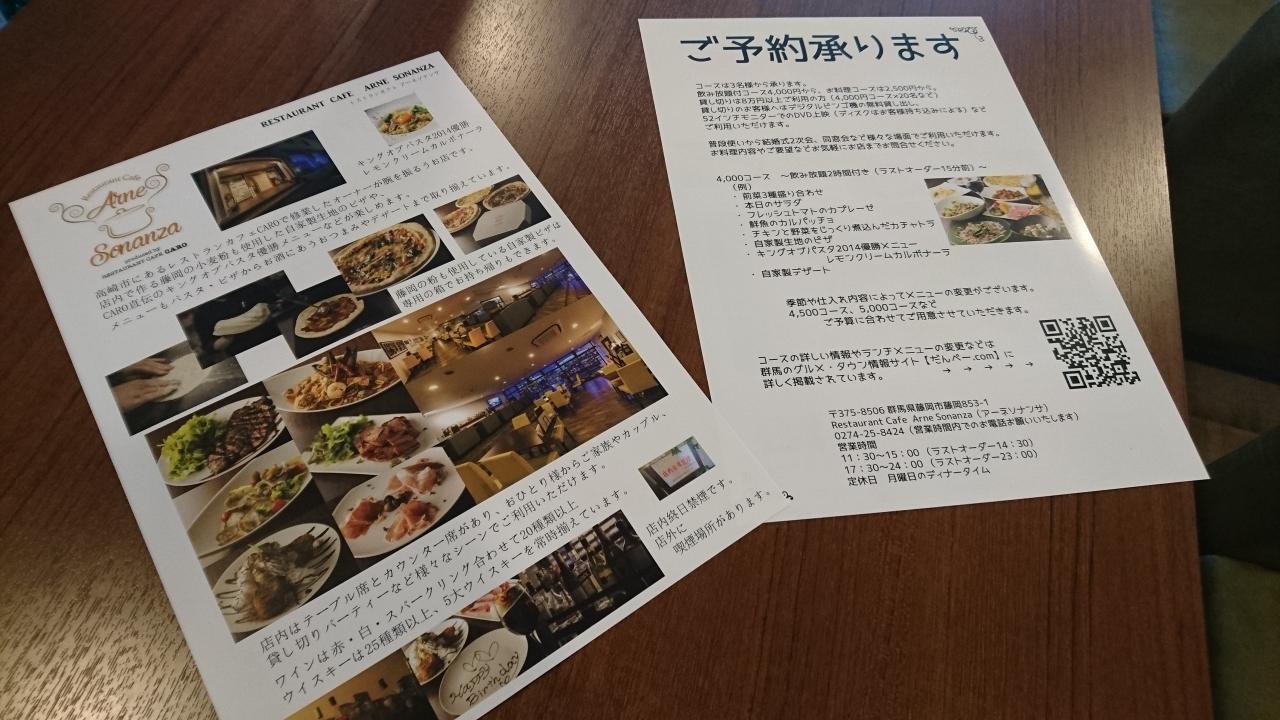 RESTAURANT CAFE ARNE SONANZA
レストランカフェ アーネソナンサ
キングオブパスタ2014優勝
レモンクリームカルボナーラ
Restaurant Cafe
Arne
Sonanza
produced by
RESTAURANT CAFE CARO
高崎市にあるレストランカフェCAROで修業したオーナーが腕を振るうお店です。
店内で作る藤岡の小麦粉も使用した自家製生地のピザや、
CARO直伝のキングオブパスタ優勝メニューなどが楽しめます。
メニューもパスタ・ピザからお酒にあうおつまみやデザートまで取り揃えています。
藤岡の粉も使用している自家製ピザは
専用の箱でお持ち帰りもできます。
店内はテーブル席とカウンター席があり、おひとり様からご家族やカップル、
貸し切りパーティーなど様々なシーンでご利用いただけます。
ワインは赤・白・スパークリング合わせて20種類以上
ウイスキーは25種類以上、5大ウイスキーを常時揃えています。
店内終日禁煙です。
店外に
喫煙場所があります。
Happy
Birthday
ご予約承ります
コースは3名様から承ります。
飲み放題付コース4,000円から、お料理コースは2,500円から。
貸し切りは8万円以上ご利用の方（4,000円コース×20名など）
貸し切りのお客様へはデジタルビンゴ機の無料貸し出し、
52インチモニターでのDVD上映（ディスクはお客様持ち込みによる）など
ご利用いただけます。
普段使いから結婚式2次会、同窓会など様々な場面でご利用いただけます。
お料理内容やご要望などお気軽にお店までお問合せください。
4,000コース ～飲み放題2時間付き（ラストオーダー15分前）～
（例）
・前菜3種盛り合わせ
・本日のサラダ
・フレッシュトマトのカプレーゼ
・鮮魚のカルパッチョ
・チキンと野菜をじっくり煮込んだカチャトラ
・自家製生地のピザ
・キングオブパスタ2014優勝メニュー
レモンクリームカルボナーラ
・自家製デザート
季節や仕入れ内容によってメニューの変更がございます。
4,500コース、5,000コースなど
ご予算に合わせてご用意させていただきます。
コースの詳しい情報やランチメニューの変更などは
群馬のグルメ・タウン情報サイト【だんべー.com】に
詳しく掲載されています。 → → → → →
〒375-8506 群馬県藤岡市藤岡853-1
Restaurant Cafe Arne Sonanza（アーネソナンサ）
0274-25-8424（営業時間内でのお電話お願いいたします）
営業時間
11：30～15：00（ラストオーダー14：30）
17：30～24：00（ラストオーダー23：00）
定休日 月曜日のディナータイム